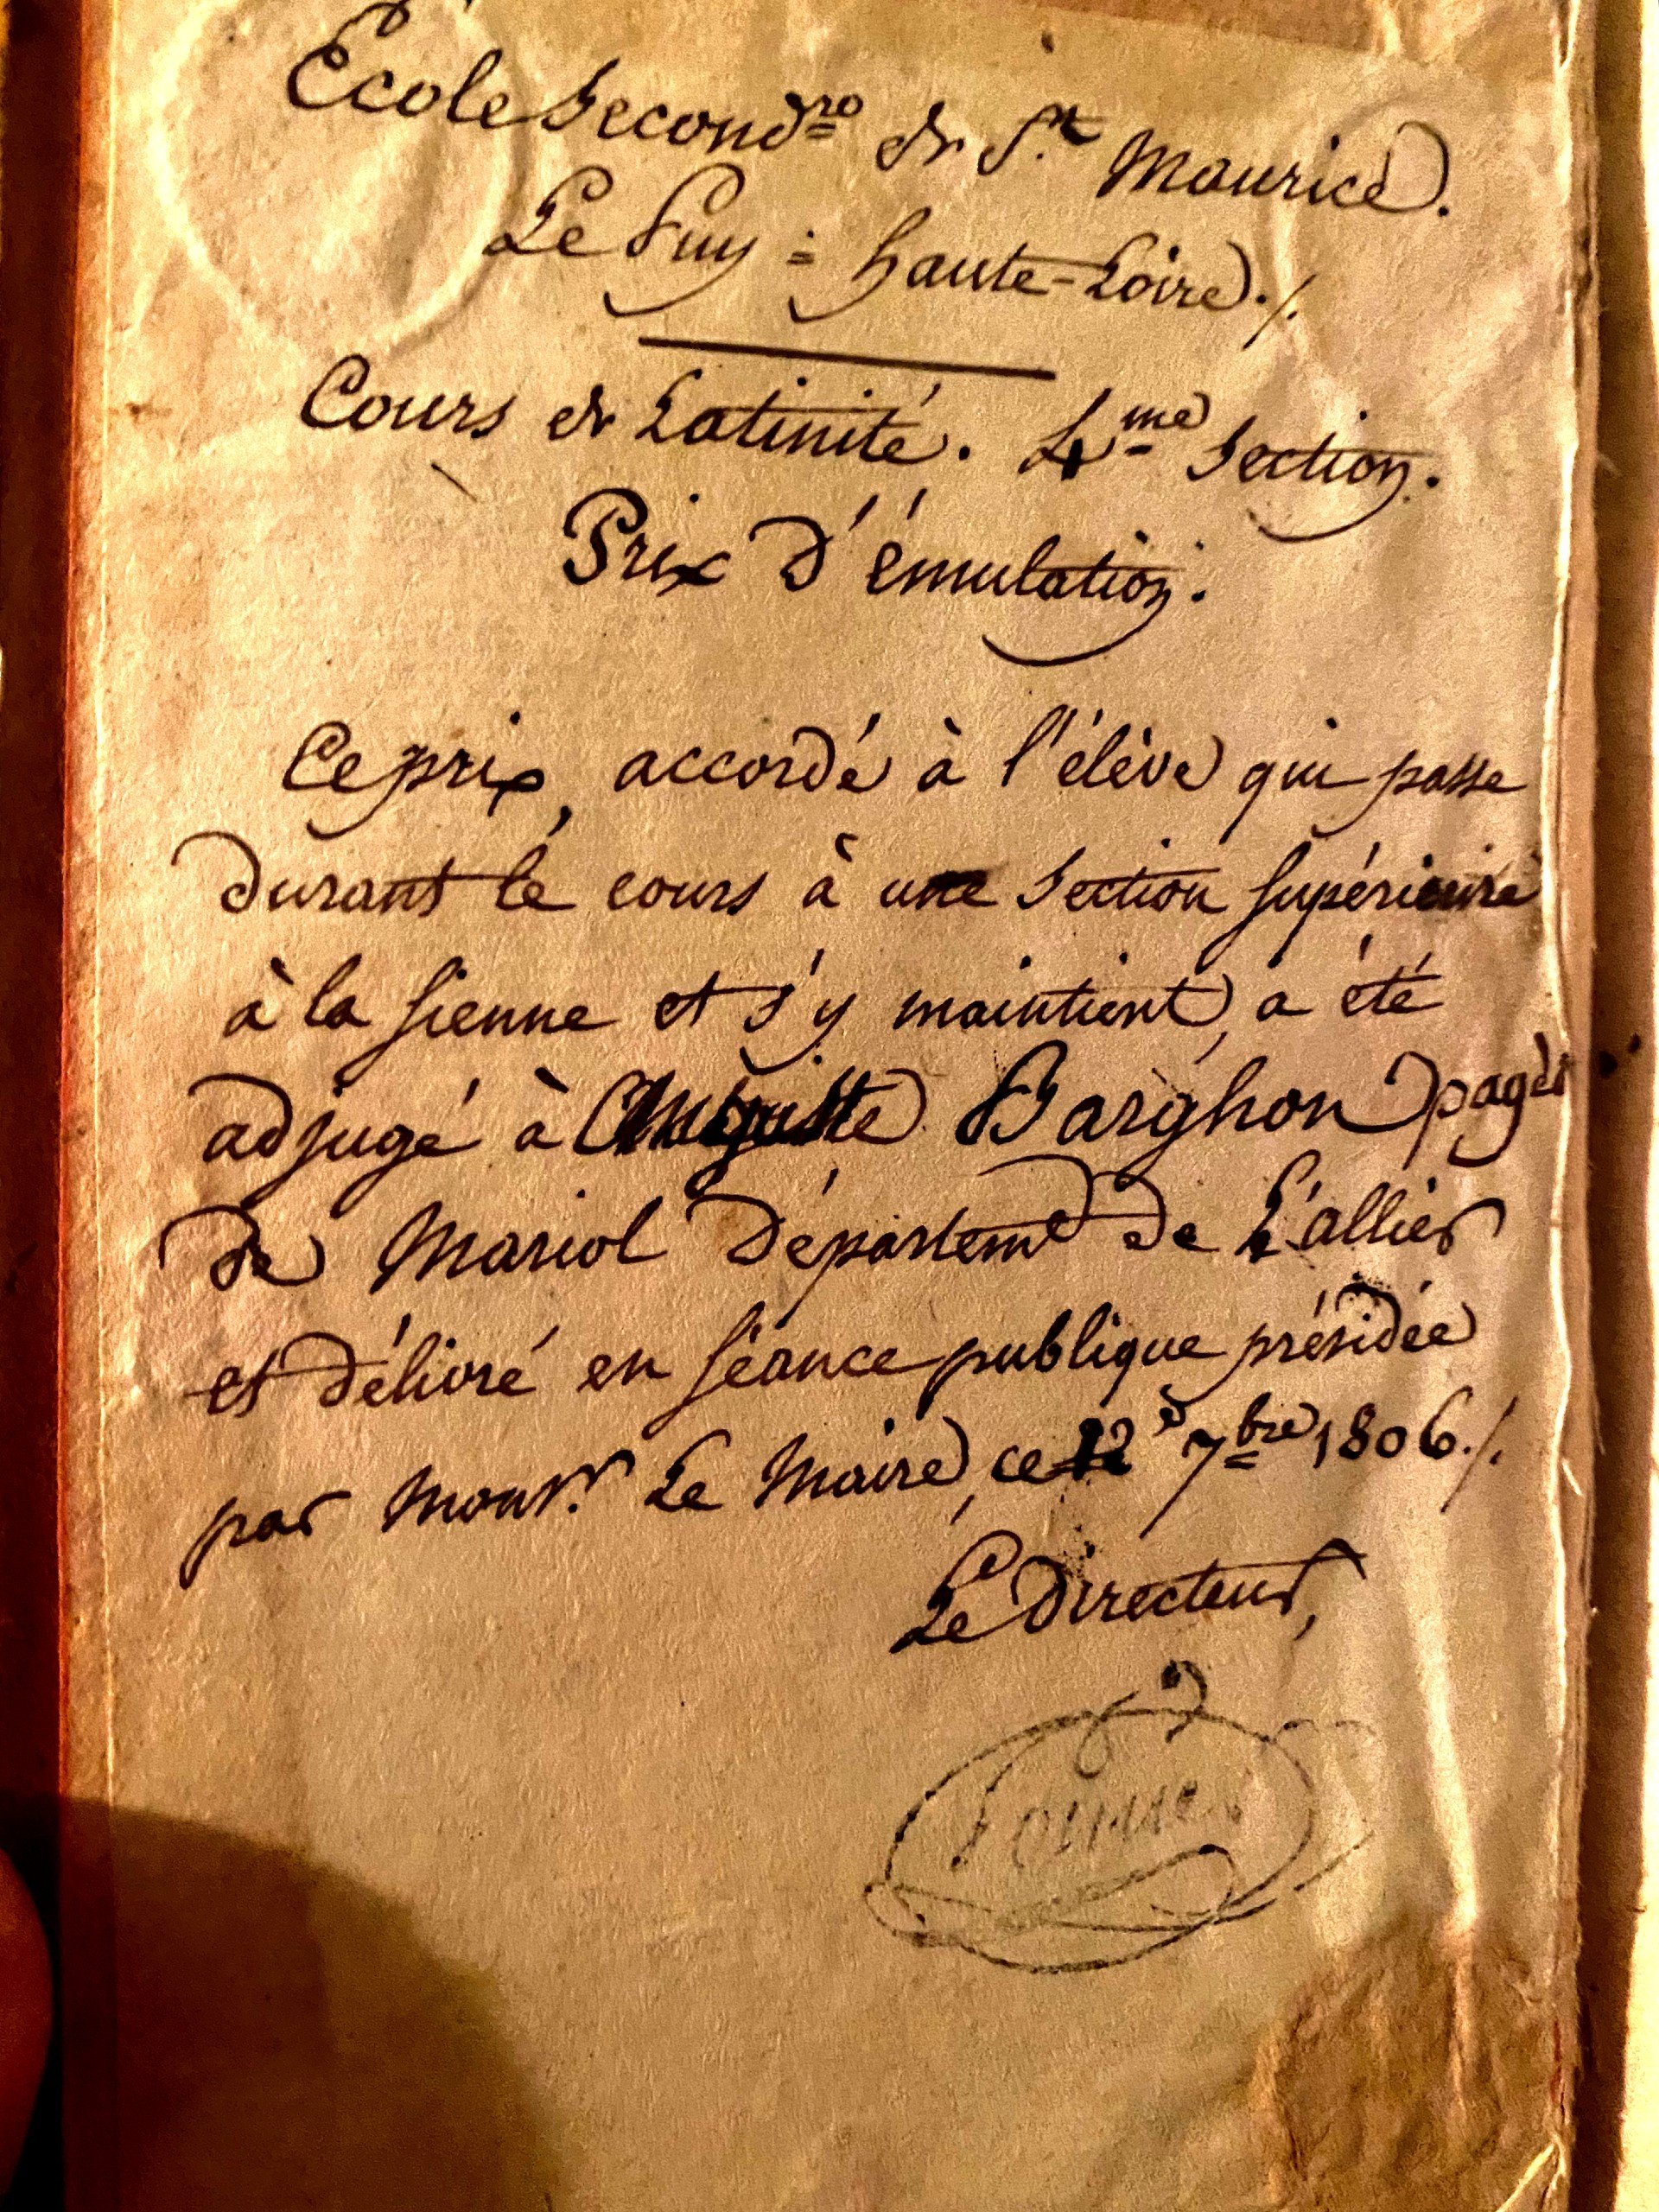 École Second.re de S.t Maurice.
Le Puy = haute-Loire ./.
Cours de Latinité. 4.me Section.
Prix d'émulation.
Ce prix, accordé à l'élève qui passe
durant le cours à une Section supérieure
à la sienne et s'y maintient, a été
adjugé à Auguste Barghon pagès
de Mariol départem.t de L'allier
et délivré en séance publique présidée
par Mons.r Le Maire, ce 7.bre 1806 ./.
Le Directeur,